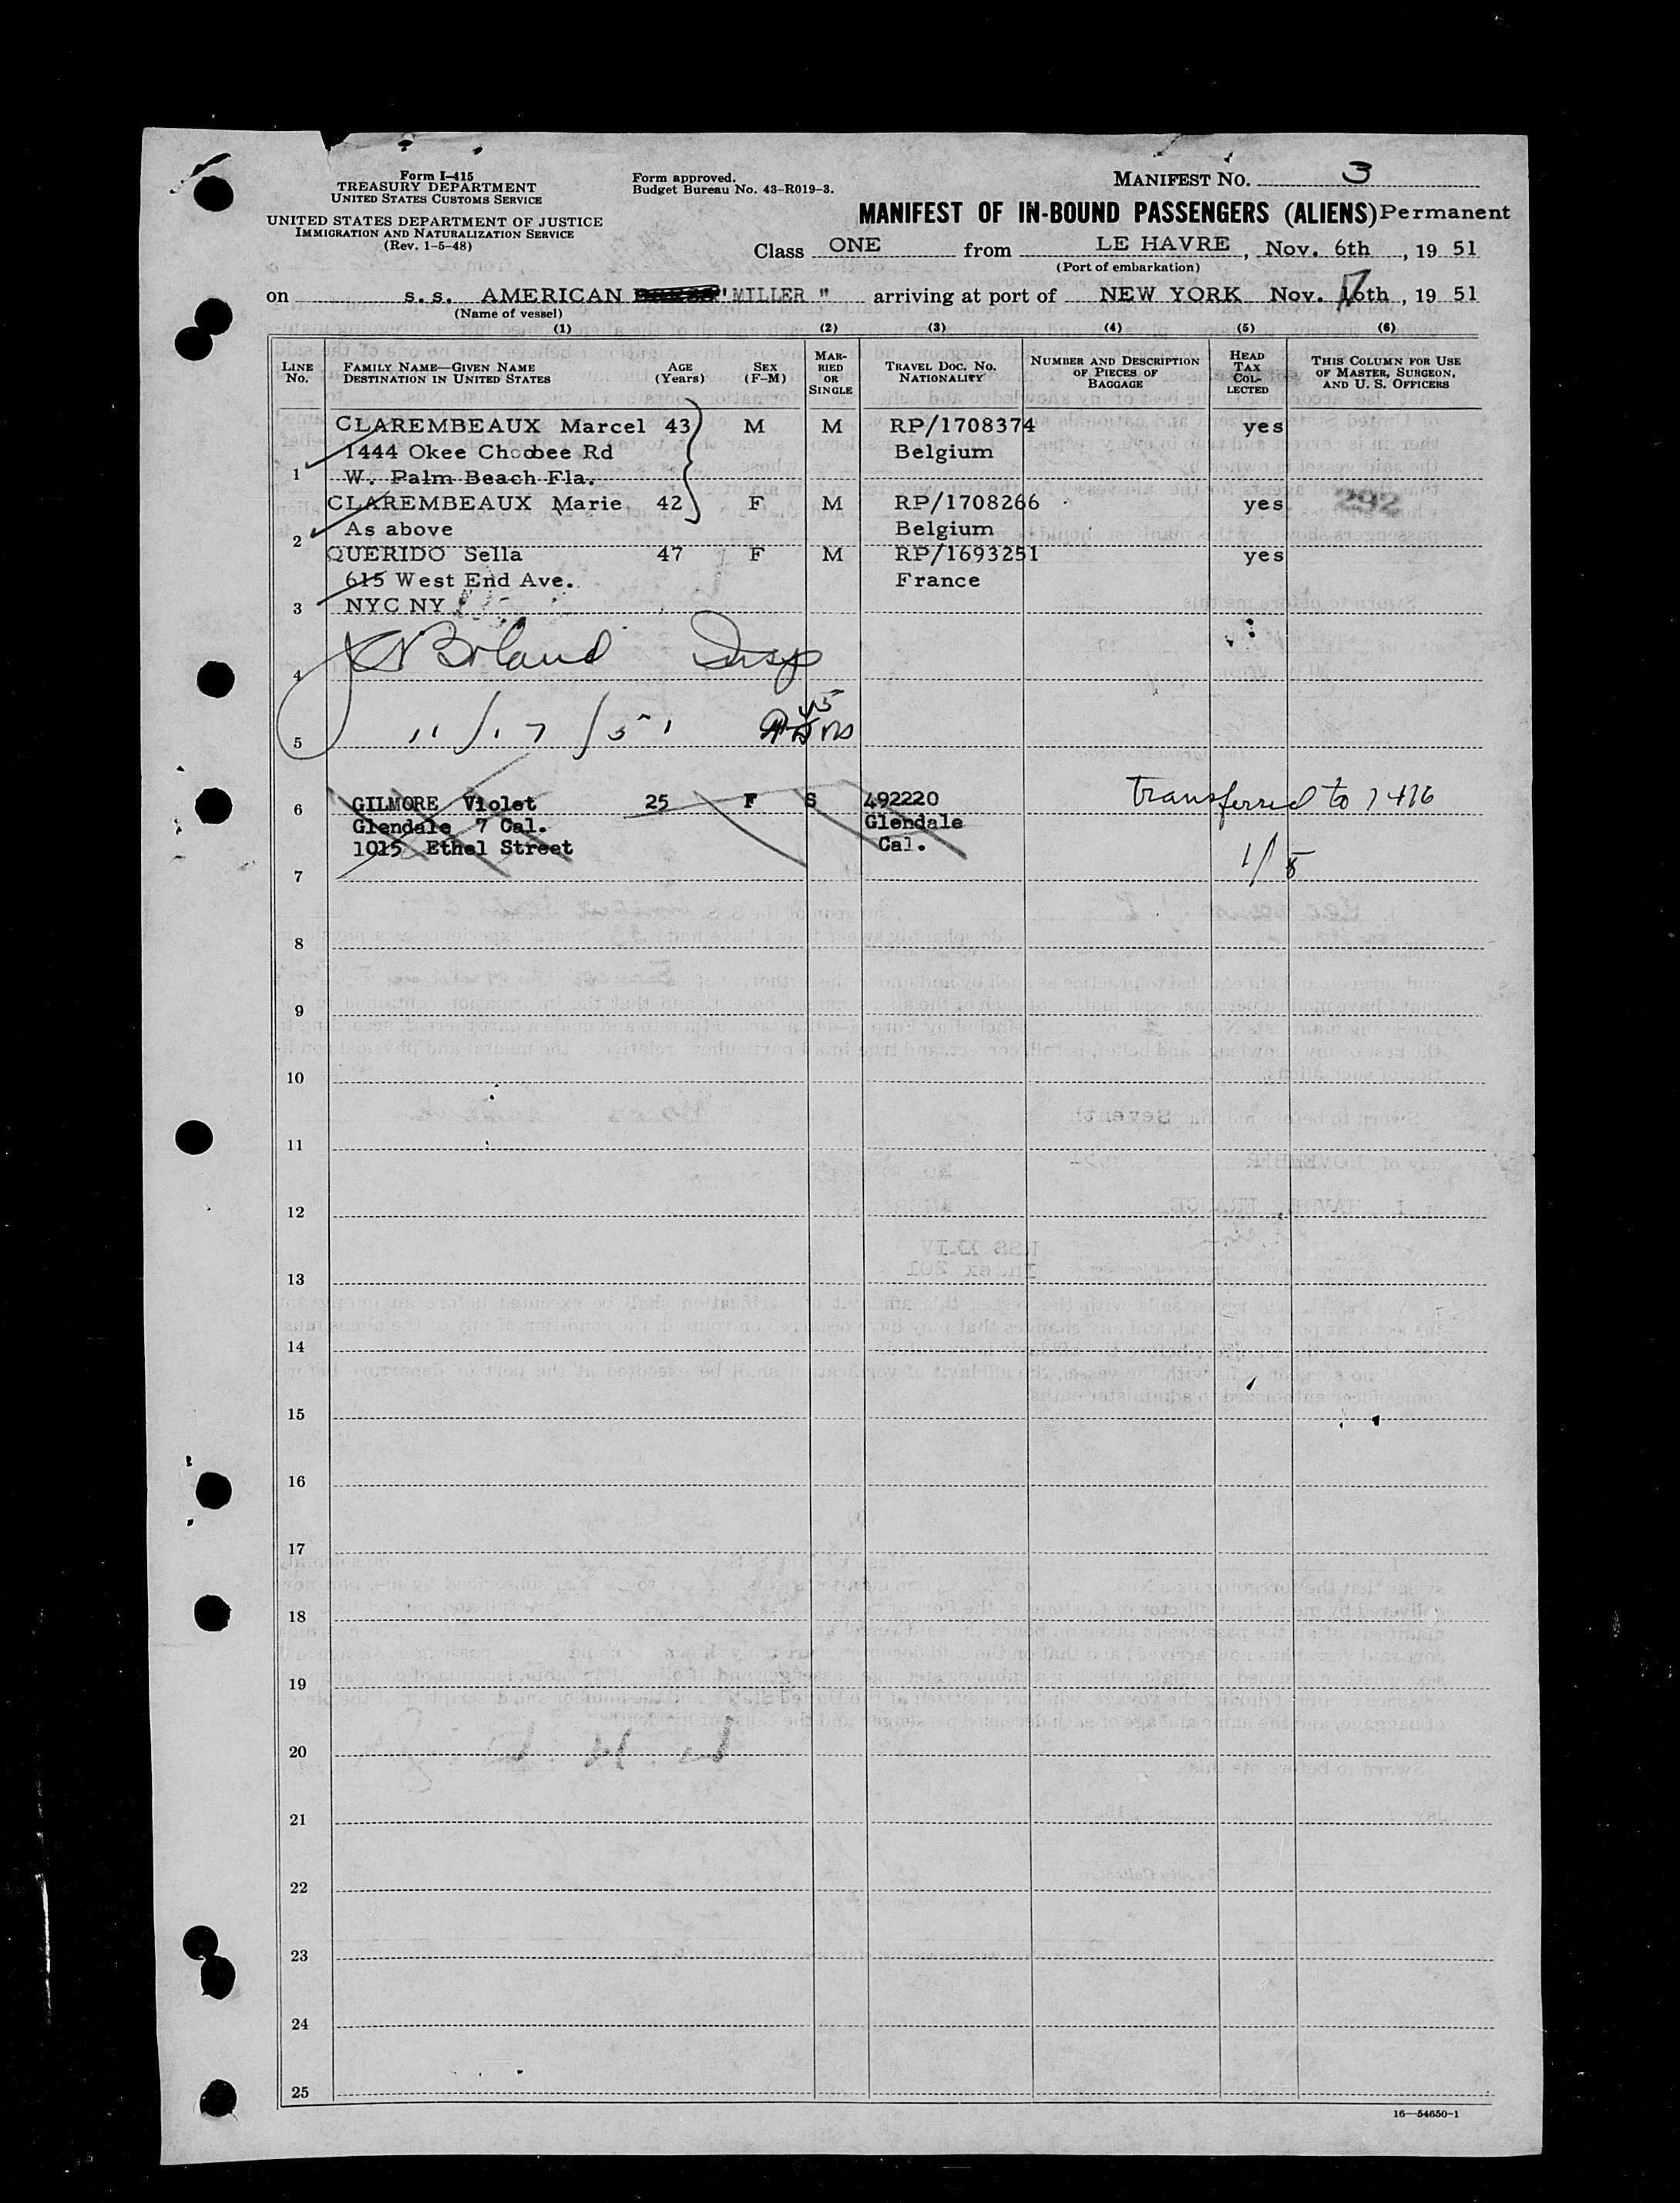 Form I-415
TREASURY DEPARTMENT
UNITED STATES CUSTOMS SERVICE
UNITED STATES DEPARTMENT OF JUSTICE
IMMIGRATION AND NATURALIZATION SERVICE
(Rev. 1-5-48)
Form approved.
Budget Bureau No. 43-R019-3.
MANIFEST NO. 3
MANIFEST OF IN-BOUND PASSENGERS (ALIENS) Permanent
Class ONE from LE HAVRE, Nov. 6th, 19 51
(Port of embarkation)
on s.s. AMERICAN "MILLER" arriving at port of NEW YORK Nov. 17th, 19 51
(Name of vessel)
(1) (2) (3) (4) (5) (6)
LINE NO.
FAMILY NAME—GIVEN NAME
DESTINATION IN UNITED STATES
AGE (Years)
SEX (F-M)
MARRIED OR SINGLE
TRAVEL DOC. NO. NATIONALITY
NUMBER AND DESCRIPTION OF PIECES OF BAGGAGE
HEAD TAX COLLECTED
THIS COLUMN FOR USE OF MASTER, SURGEON, AND U. S. OFFICERS
CLAREMBEAUX Marcel 43 M M RP/1708374 yes
1444 Okee Choobee Rd Belgium
1 W. Palm Beach Fla.
CLAREMBEAUX Marie 42 F M RP/1708266 yes 292
2 As above Belgium
QUERIDO Sella 47 F M RP/1693251 yes
615 West End Ave. France
3 NYC NY
4 Boland Insp
5 11/17/51
6 GILMORE Violet 25 F S 492220 transferred to 1416
Glendale 7 Cal. Glendale
1015 Ethel Street Cal.
7
8
9
10
11
12
13
14
15
16
17
18
19
20
21
22
23
24
25
16—54650-1